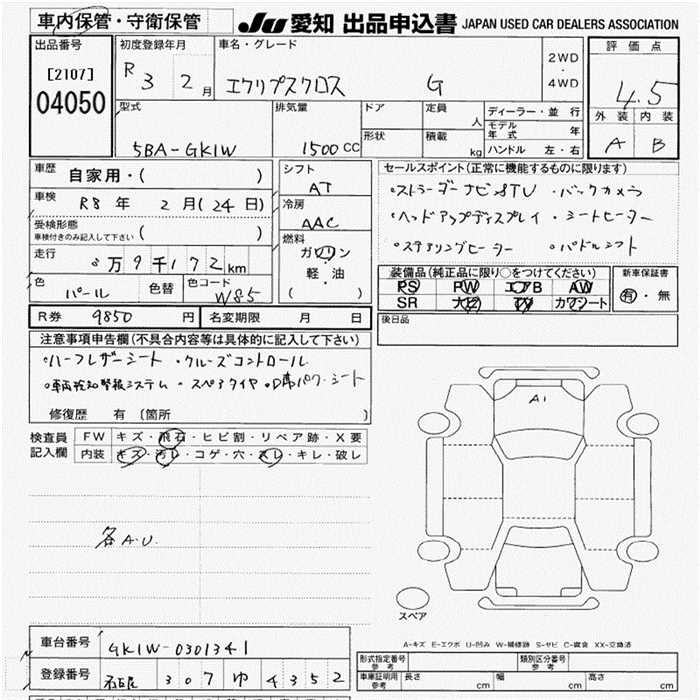 車内保管・守衛保管
JU 愛知 出品申込書 JAPAN USED CAR DEALERS ASSOCIATION
出品番号 [2107] 04050
初度登録年月 R 3 2 月
車名・グレード エクリプスクロス G
2WD・4WD
評価点 4.5
外装 内装
A B
型式 5BA-GK1W
排気量 1500 CC
ドア 形状
定員 人
積載 kg
ディーラー・並行
モデル年式 年
ハンドル 左・右
車歴 自家用・( )
車検 R8 年 2 月(24 日)
受検形態 車検付きのみ記入して下さい ( )
走行 8万9千172km
色 パール 色替 色コード W85
シフト AT
冷房 AAC
燃料 ガソリン 軽・油 ( )
セールスポイント(正常に機能するものに限ります)
・ストラーダーナビ&TV ・バックカメラ
・ヘッドアップディスプレイ ・シートヒーター
・ステアリングヒーター ・パドルシフト
装備品(純正品に限り○をつけてください)
PS PW エアB AW
SR ナビ TV カワシート
新車保証書 有・無
R券 9850 円 名変期限 月 日
後日品
注意事項申告欄(不具合内容等は具体的に記入して下さい)
・ハーフレザーシート ・クルーズコントロール
・車両検知警報システム ・スペアタイヤ ・D席パワーシート
修復歴 有〔箇所 〕
検査員記入欄
FW キズ・飛石・ヒビ割・リペア跡・X要
内装 キズ・汚レ・コゲ・穴・スレ・キレ・破レ
各A.U.
A1
スペア
A-キズ E-エクボ U-凹み W-補修跡 S-サビ C-腐食 XX-交換済
車台番号 GK1W-0301341
登録番号 名古屋 307 ゆ 4352
形式指定番号 参考 類別区分番号 参考
車庫証明用 参考 長さ cm 幅 cm 高さ cm